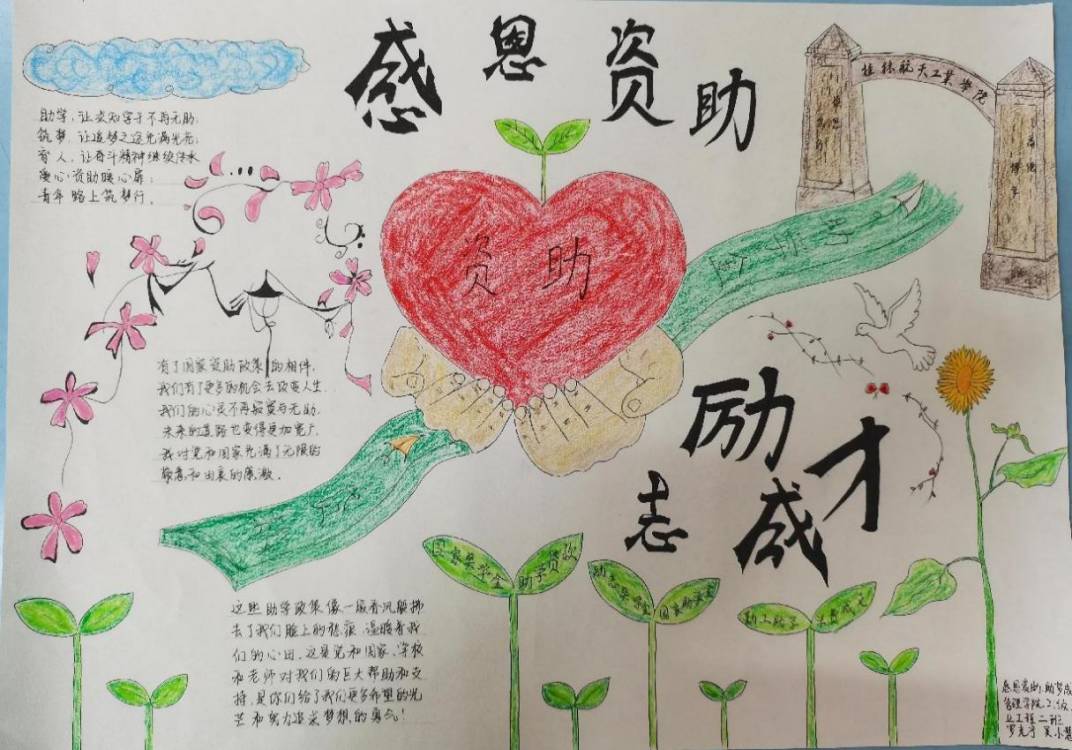 感恩资助
桂林航天工业学院
助学,让求知学子不再无助;
筑梦,让追梦之途充满光亮;
育人,让奋斗精神继续传承
爱心资助暖心扉;
青年路上筑梦行。
资助
有了国家资助政策的相伴,
我们有了更多的机会去改变人生
我们的心灵不再寂寞与无助,
未来的道路也变得更加宽广,
我对党和国家充满了无限的
敬意和由衷的感激。
励
志
成
才
国家奖学金
助学贷款
励志奖学金
国家助学金
勤工助学
这些助学政策像一股春风般拂
去了我们脸上的愁容,温暖着我
们的心田,这是党和国家、学校
和老师对我们的巨大帮助和支
持,是你们给了我们更多希望的光
芒和努力追求梦想的勇气!
管理学院
业工程二班